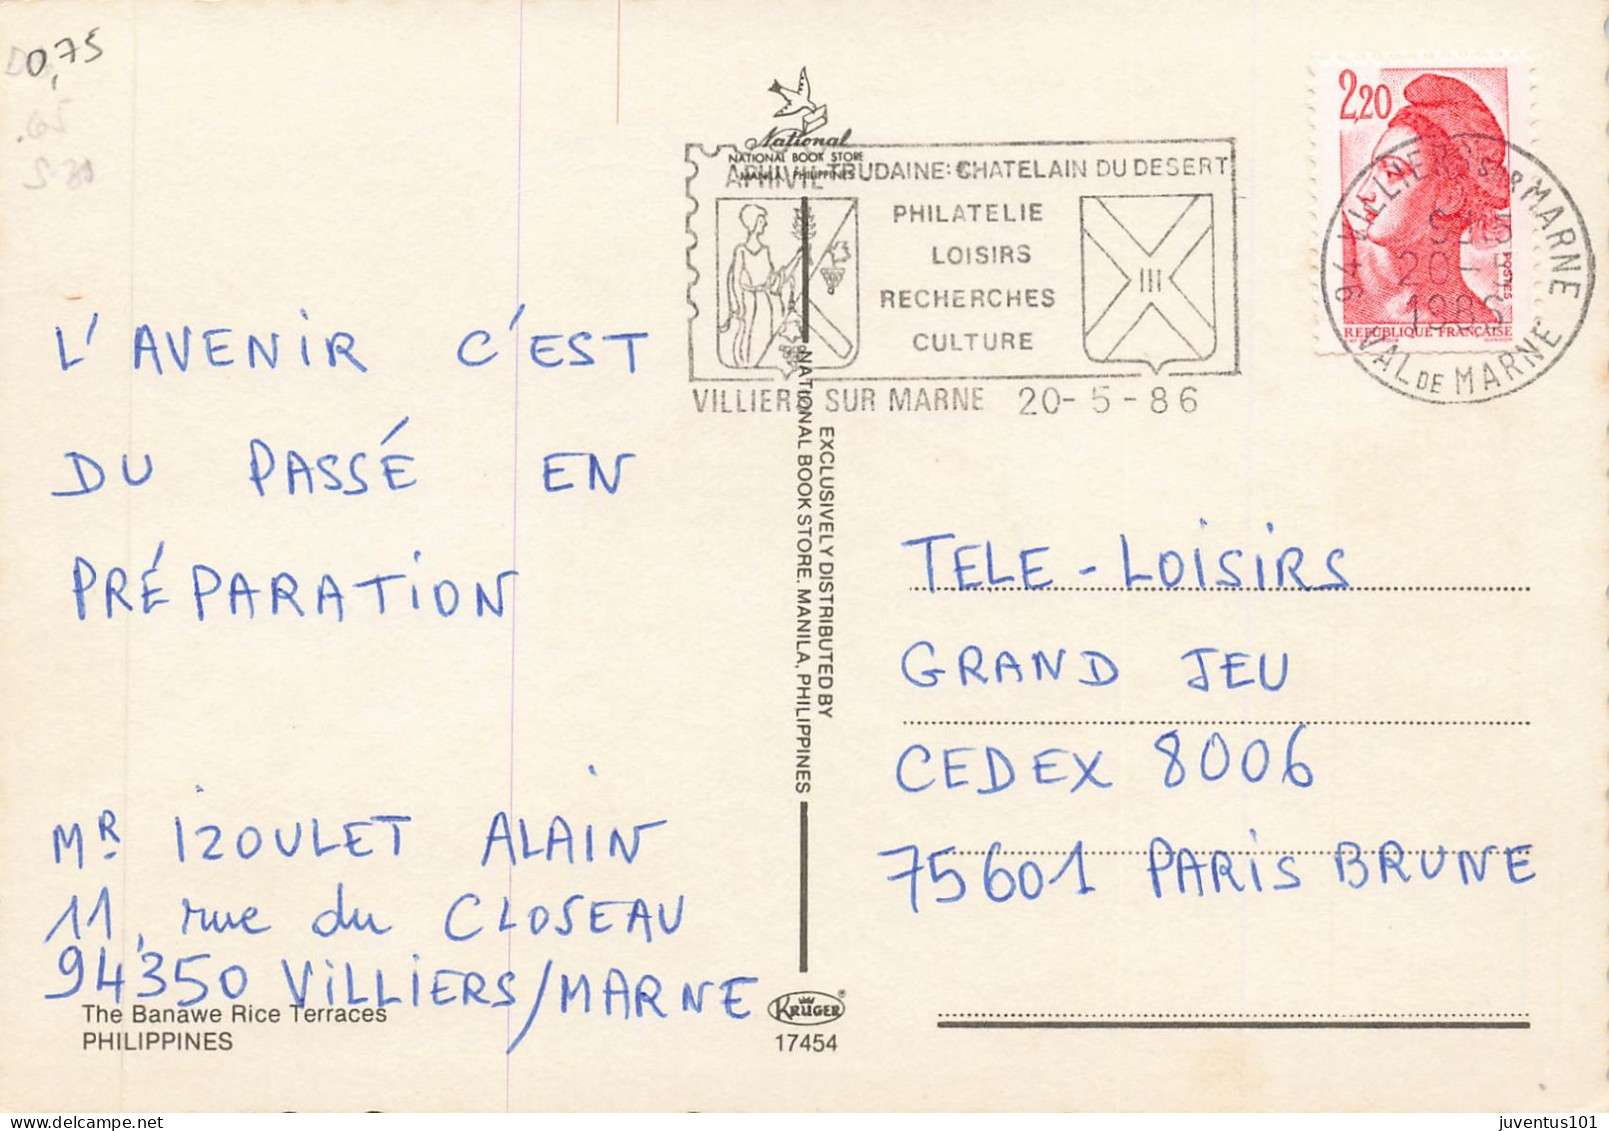 0,75
National
NATIONAL BOOK STORE
MANILA, PHILIPPINES
APHIVIL-TRUDAINE: CHATELAIN DU DESERT
PHILATELIE
LOISIRS
RECHERCHES
CULTURE
VILLIERS SUR MARNE 20-5-86
2,20
POSTES
REPUBLIQUE FRANÇAISE
94 VILLIERS SUR MARNE
20-5
1986
VAL DE MARNE
L'AVENIR C'EST
DU PASSÉ EN
PRÉPARATION
MR IZOULET ALAIN
11, rue du CLOSEAU
94350 VILLIERS/MARNE
The Banawe Rice Terraces
PHILIPPINES
EXCLUSIVELY DISTRIBUTED BY
NATIONAL BOOK STORE, MANILA, PHILIPPINES
KRÜGER
17454
TELE-LOISIRS
GRAND JEU
CEDEX 8006
75601 PARIS BRUNE
juventus101